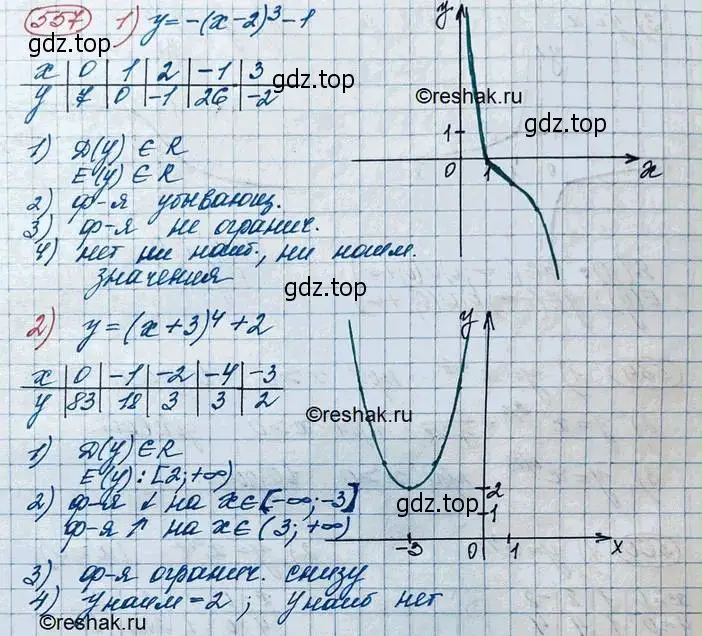 557 1) y = -(x-2)³-1
x | 0 | 1 | 2 | -1 | 3
y | 7 | 0 | -1 | 26 | -2
1) D(y) ∈ R
E(y) ∈ R
2) ф-я убывающ.
3) ф-я не огранич.
4) нет ни наиб., ни наим.
значения
y
1
0 1 x
2) y = (x+3)⁴+2
x | 0 | -1 | -2 | -4 | -3
y | 83 | 18 | 3 | 3 | 2
1) D(y) ∈ R
E(y): [2; +∞)
2) ф-я ↓ на x∈[-∞;-3]
ф-я ↑ на x∈(3; +∞)
3) ф-я огранич. снизу
4) y наим = 2 ; y наиб нет
y
2
1
-3 0 1 x
gdz.top
©reshak.ru
gdz.top
gdz.top
©reshak.ru
gdz.top
©reshak.ru